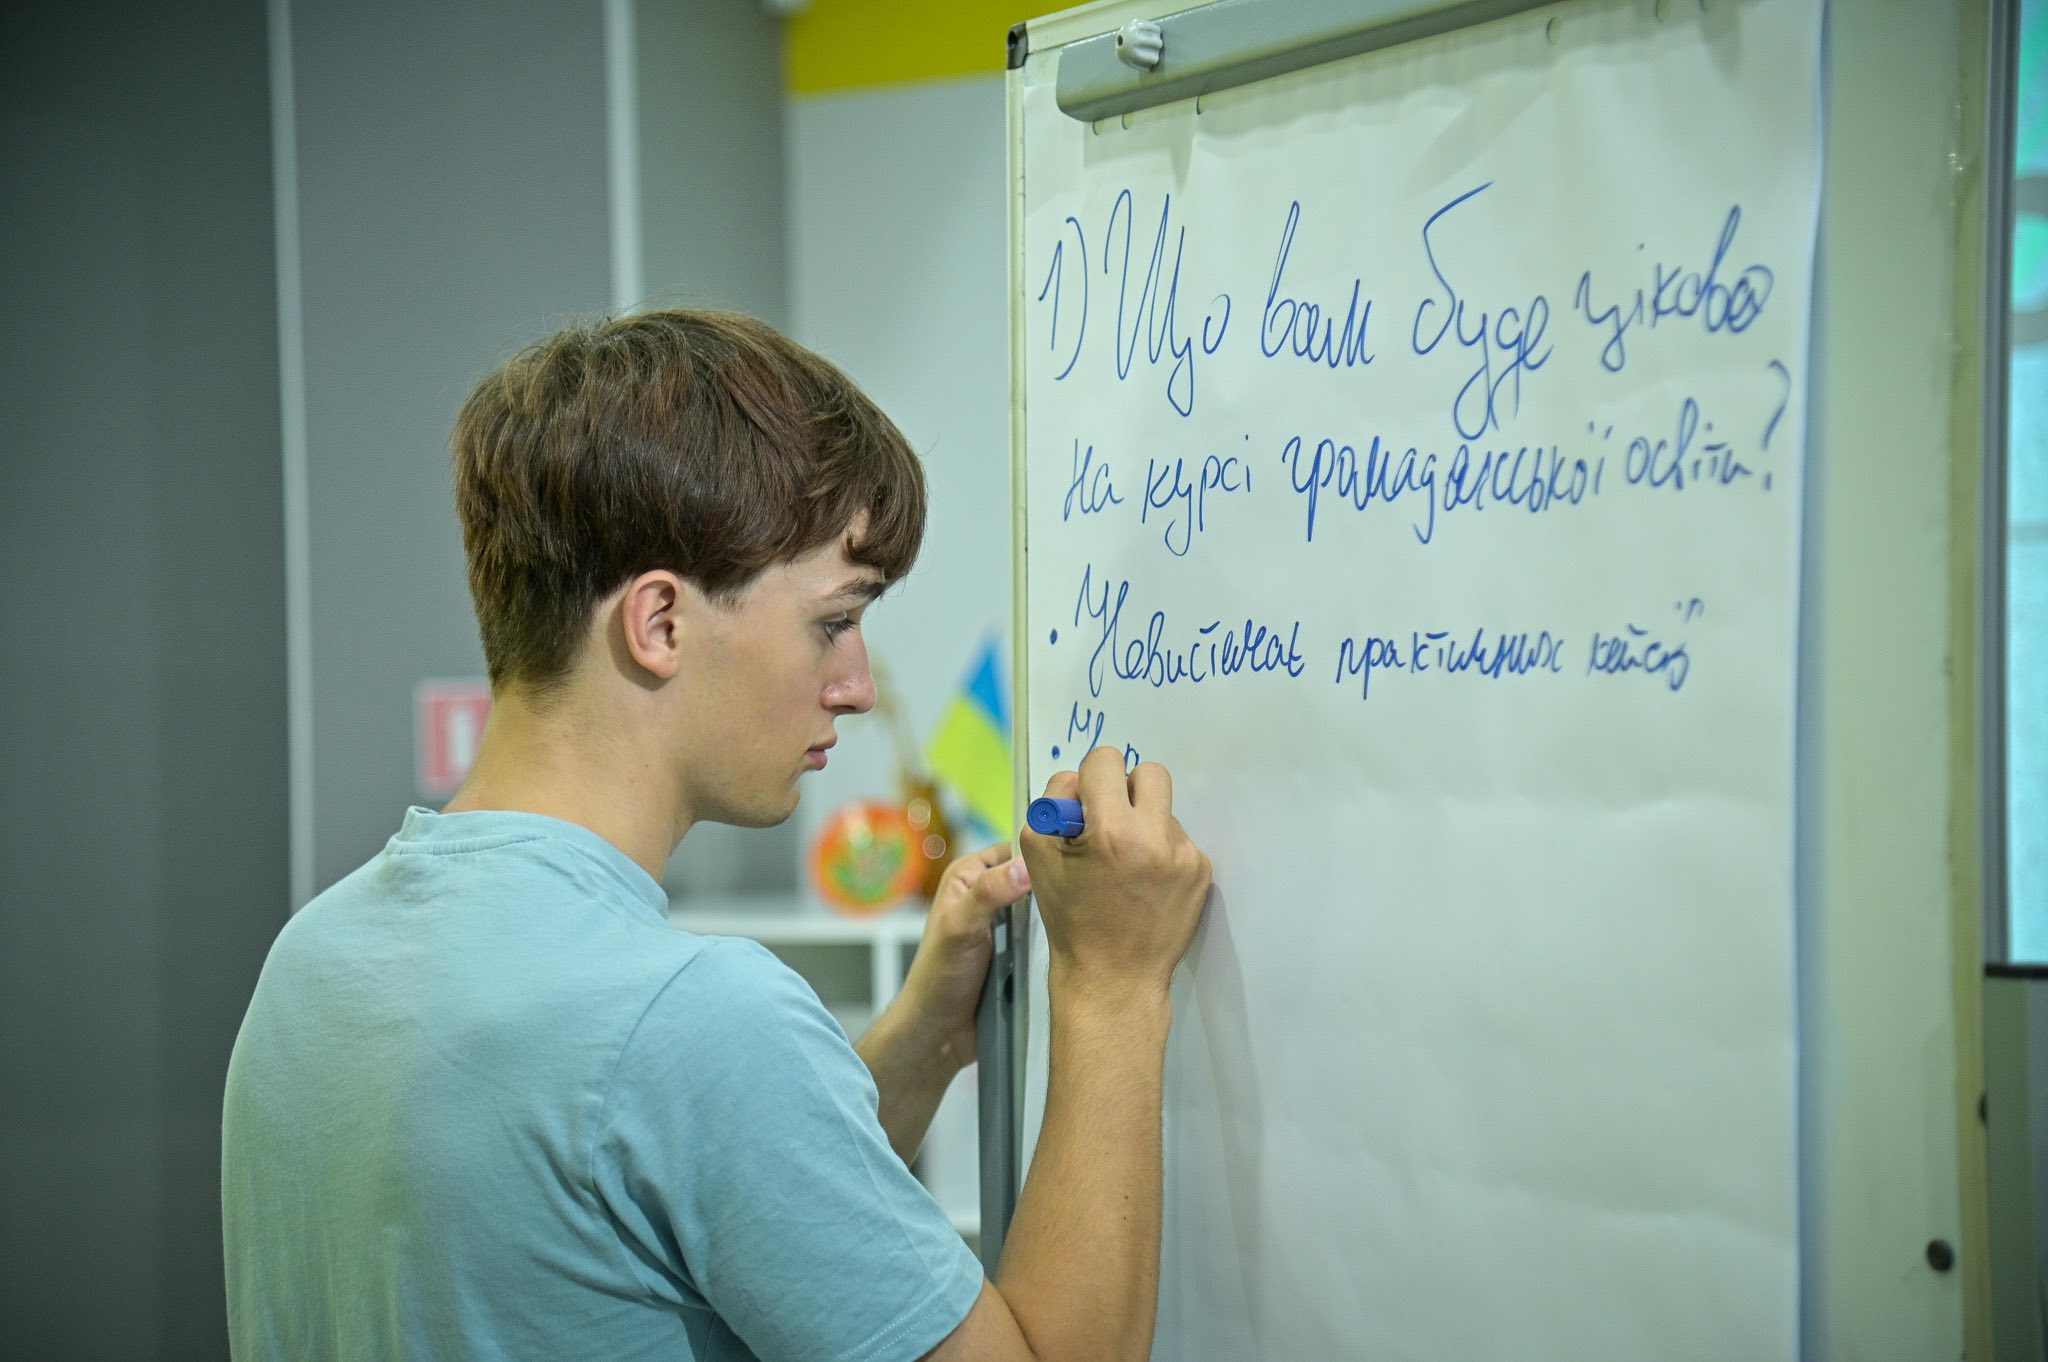 1) Що вам буде цікаво
на курсі громадянської освіти?
• Невистачає практичних кейсів
•